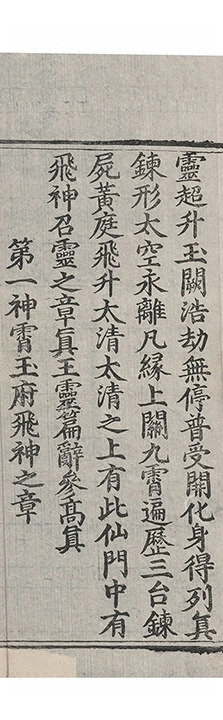 靈超升玉闕浩劫無停普受開化身得列眞
鍊形太空永離凡緣上關九霄遍歷三台鍊
屍黃庭飛升太清太清之上有此仙門中有
飛神召靈之章眞王靈篇辭參高眞
第一神霄玉府飛神之章